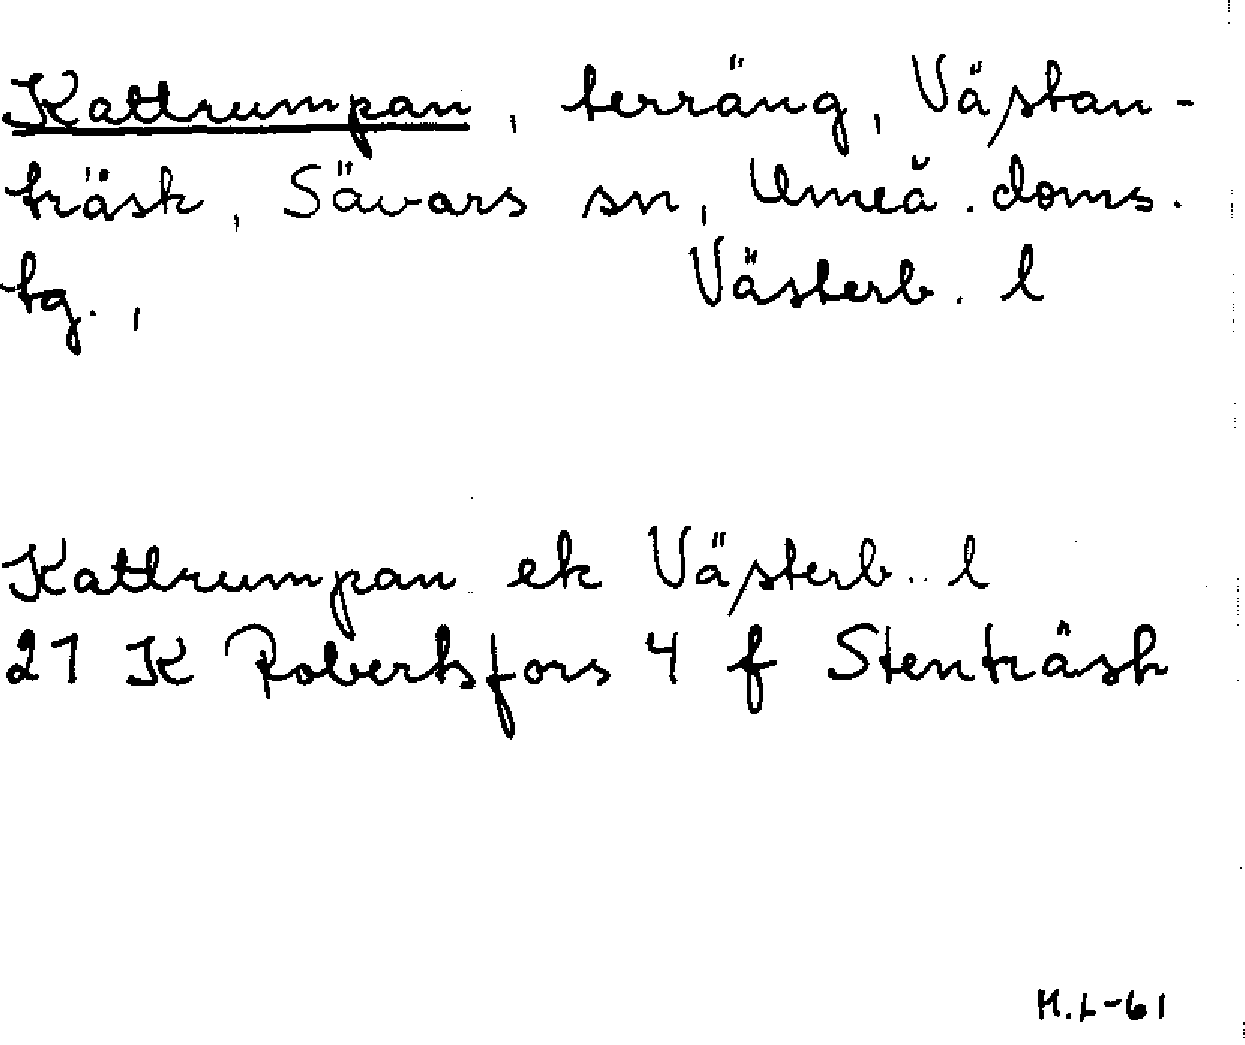 Kattrumpan, terräng, Västan-
träsk, Sävars sn, Umeå. doms.
tg., Västerb. l
Kattrumpan ek Västerb.. l
21 K Robertsfors 4 f Stenträsk
M.L-61